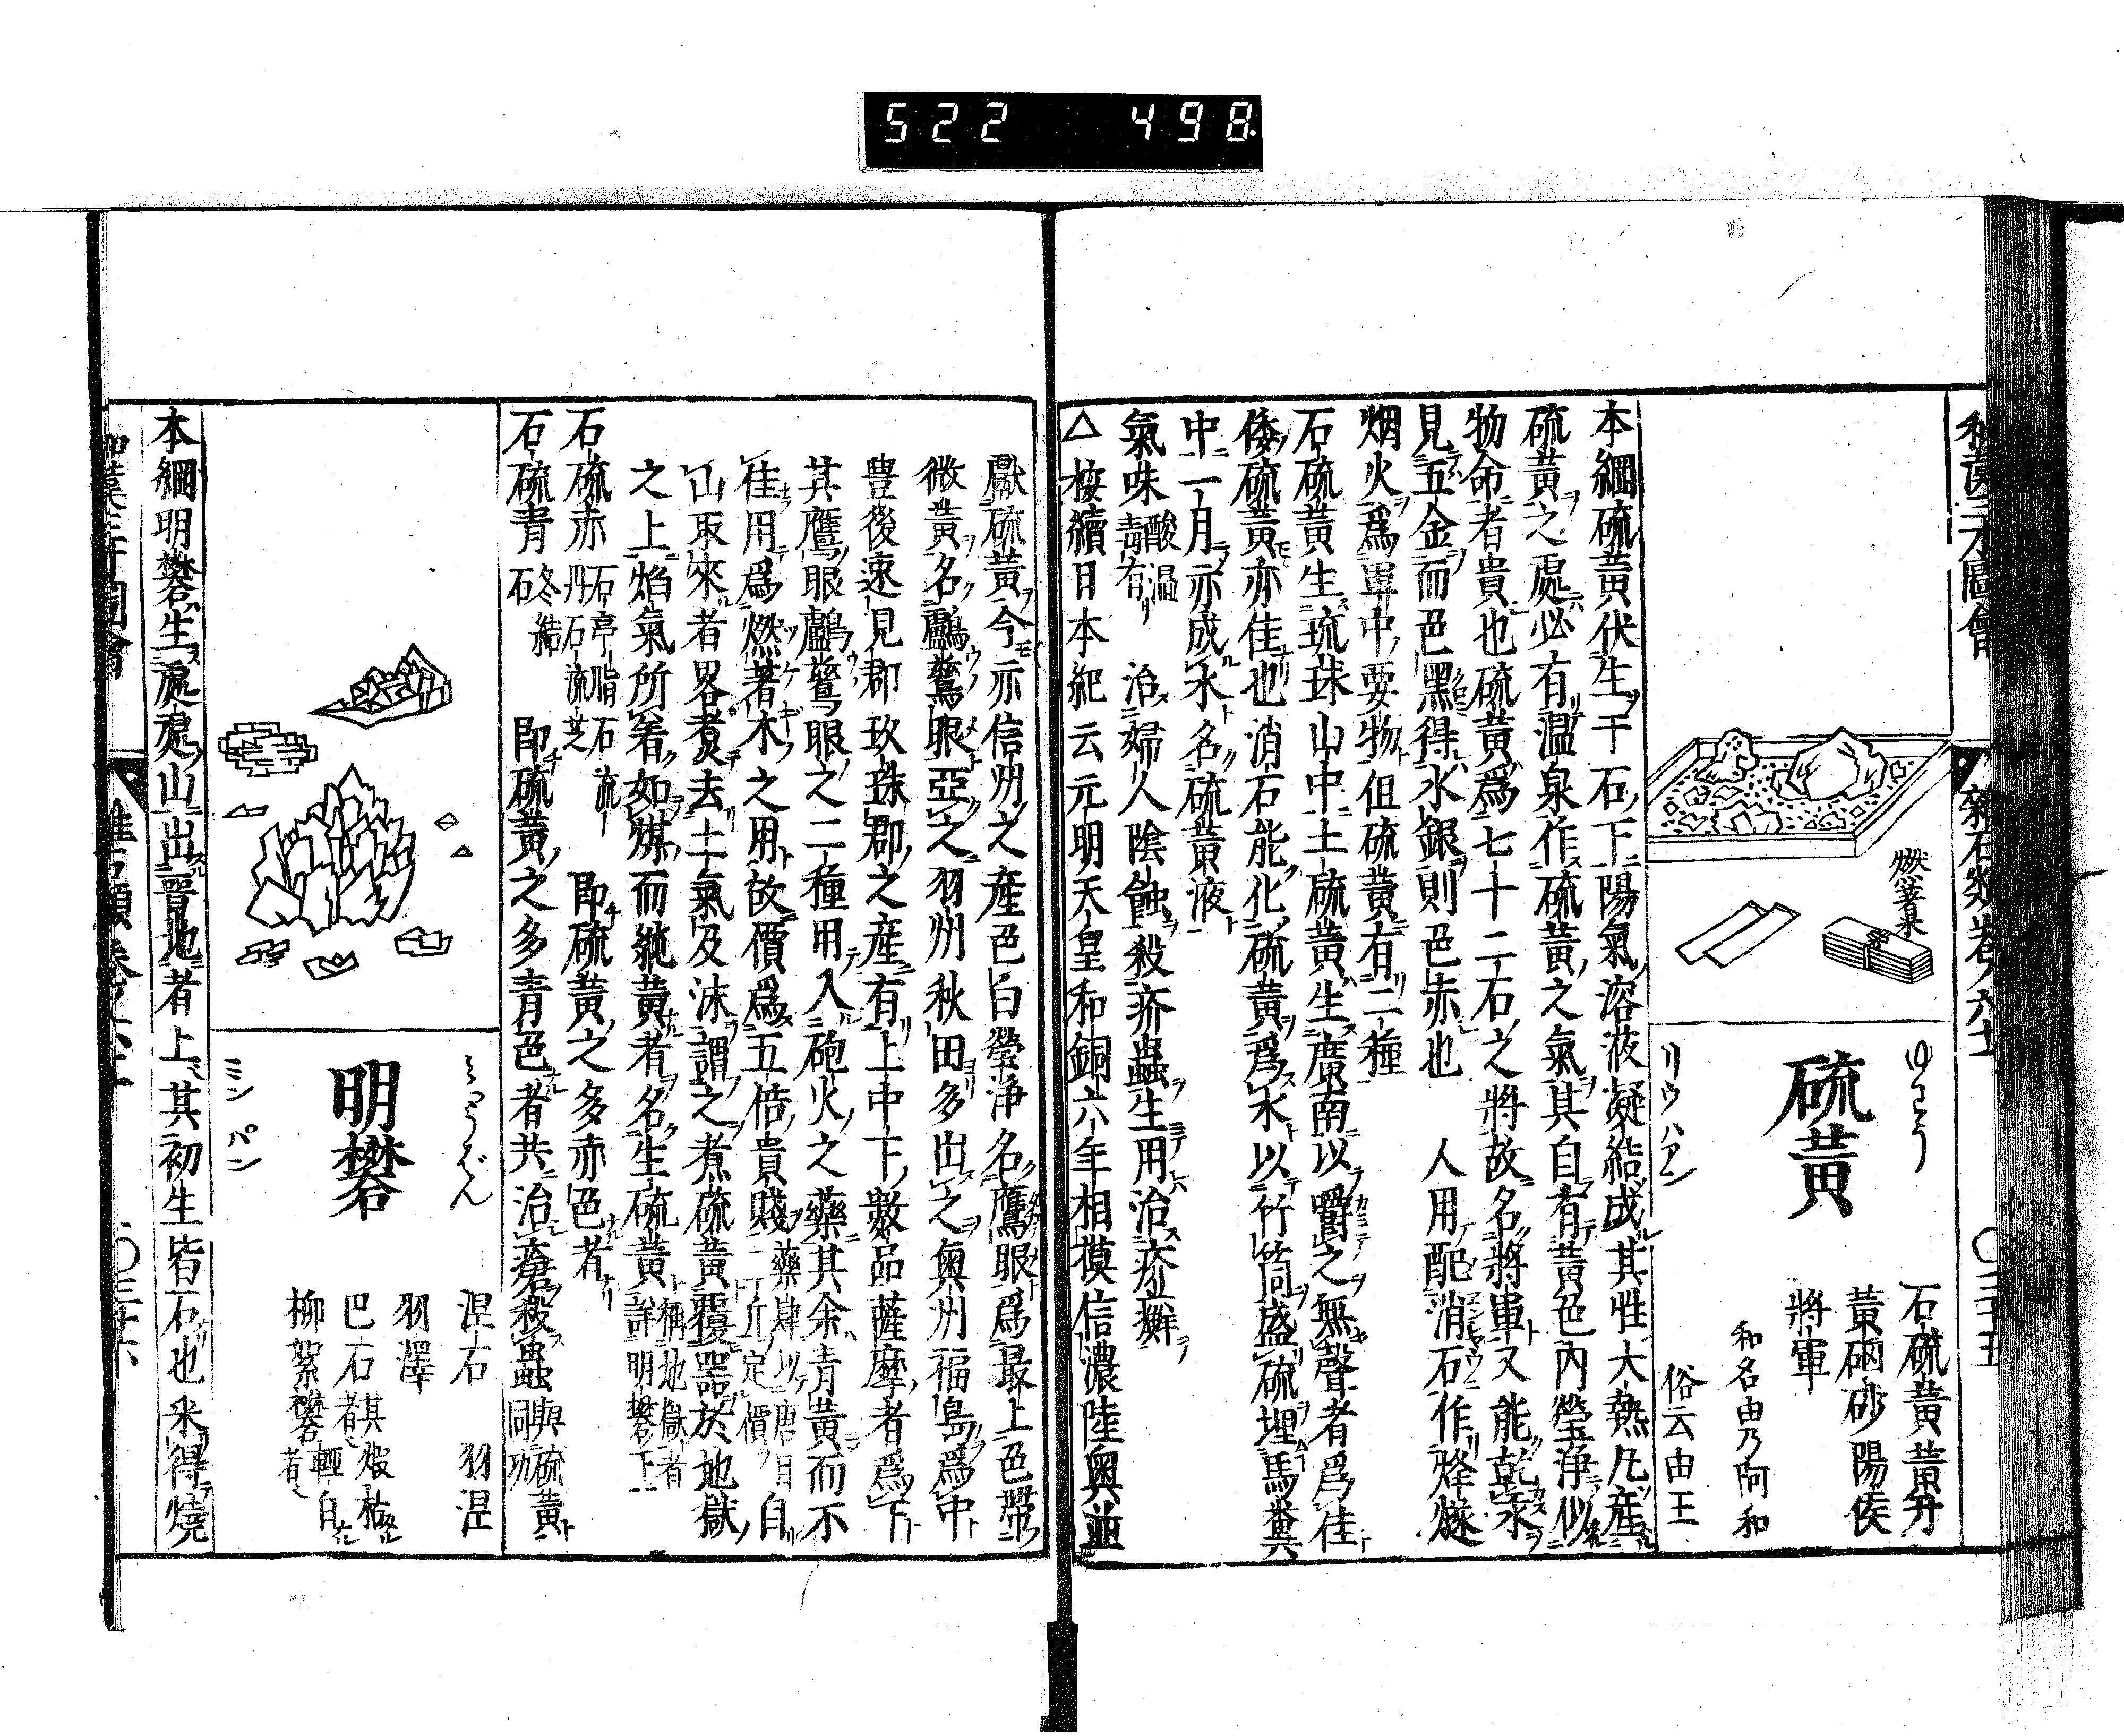 522 498
和漢三才圖會
雜石類卷ノ六十一
〇三十五
燃著木
ゆわう
硫黃
リウハアン
石硫黃 黃牙
黃硇砂 陽侯
將軍
和名由乃阿和
俗云由王
本綱硫黃伏生于石下陽氣溶液凝結成其性大熱凡産
硫黃之處必有溫泉作硫黃之氣其自有黃色內瑩浄似
物命者貴也硫黃爲七十二石之將故名將軍又能乾汞
見五金而色黑得水銀則色赤也 人用配消石作烽燧
烟火爲軍中要物但硫黃有二種
石硫黃生琉球山中土硫黃生廣南以嚼之無聲者爲佳
倭硫黃亦佳也消石能化硫黃爲水以竹筒盛硫埋馬糞
中一月亦成水名硫黃液
氣味酸溫有毒 治婦人陰蝕殺疥蟲生用治疥癬
△按續日本紀云元明天皇和銅六年相摸信濃陸奧並
獻硫黃今亦信州之産色白瑩浄名鷹眼爲最上色帶
微黃名鸕鷀眼亞之羽州秋田多出之奧州福島爲中
豊後速見郡玖珠郡之産有上中下數品薩摩者爲下
其鷹眼鸕鷀眼之二種用入砲火之藥其余青黃而不
佳用爲燃著木之用故價爲五倍貴賤藥肆以唐目自一斤定價
山取來者畧煮去土氣及沫謂之煮硫黃覆器於地獄
之上焰氣所着如煤而純黃者名生硫黃稱地獄者詳明礬下
石硫赤石亭脂 石流丹 石流芝 即硫黃之多赤色者
石硫青冬結石 即硫黃之多青色者共治瘡殺蟲與硫黃同功
みやうばん
明礬
ミンパン
涅石 羽涅
羽澤
巴石其煆枯者
柳絮礬輕白者
本綱明礬生處處山出晋地者上其初生皆石也采得燒
和漢三才圖會
雜石類卷六十一
〇三十六